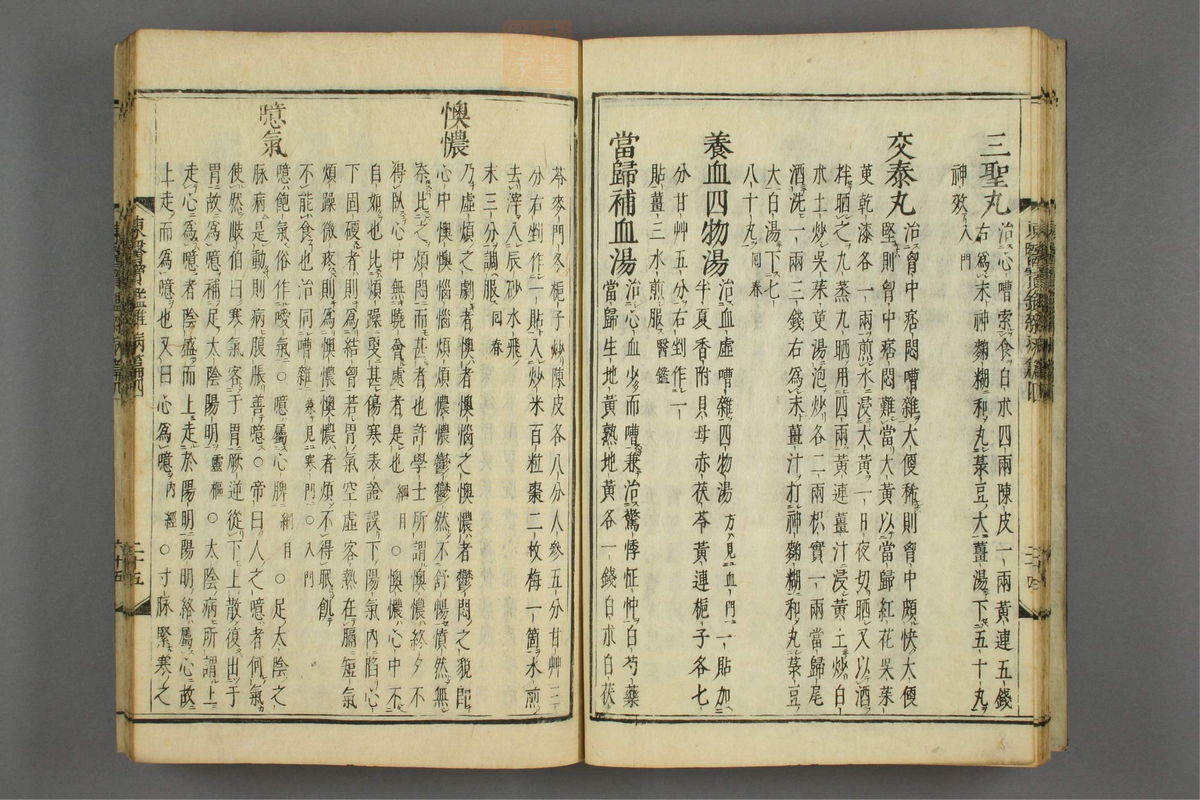 三聖丸 治心嘈索食白朮四兩陳皮一兩黃連五錢
右爲末神麴糊和丸菉豆大薑湯下五十丸
神效入門
交泰丸 治胷中痞悶嘈雜大便稀則胷中頗快大便
堅則胷中痞悶難當大黃以當歸紅花吳茱
萸乾漆各一兩煎水浸大黃一日夜切晒又以酒
拌晒之九蒸九晒用四兩黃連薑汁浸黃土炒白
朮土炒吳茱萸湯泡炒各二兩枳實一兩當歸尾
酒洗一兩三錢右爲末薑汁打神麴糊和丸菉豆
大白湯下七
八十丸回春
養血四物湯 治血虛嘈雜四物湯方見血門一貼加
半夏香附貝母赤茯苓黃連梔子各七
分甘艸五分右剉作一
貼薑三水煎服醫鑑
當歸補血湯 治心血少而嘈兼治驚悸怔忡白芍藥
當歸生地黃熟地黃各一錢白朮白茯
苓麥門冬梔子炒陳皮各八分人參五分甘艸三
分右剉作一貼入炒米百粒棗二枚梅一箇水煎
去滓入辰砂水飛
末三分調服回春
懊憹 乃虛煩之劇者懊者懊惱之懊憹者鬱悶之貌卽
心中懊懊惱惱煩煩憹憹鬱鬱然不舒暢憒憒然無
奈比之煩悶而甚者也許學士所謂懊憹終夕不
得臥心中無曉會處者是也綱目○懊憹心中不
自如也比煩躁更甚傷寒表證誤下陽氣內陷心
下固硬者則爲結胷若胃氣空虛客熱在膈短氣
煩躁微疼則爲懊憹懊憹者煩不得眠飢
不能食也治同嘈雜兼見寒門○入門
噫氣 噫飽氣俗作噯氣○噫屬心脾綱目○足太陰之
脉病是動則病腹脹善噫○帝曰人之噫者何氣
使然歧伯曰寒氣客于胃厥逆從下上散復出于
胃故爲噫補足太陰陽明靈樞○太陰病所謂上
走心爲噫者陰盛而上走於陽明陽明絡屬心故
上走而爲噫也又曰心爲噫內經○寸脉緊寒之